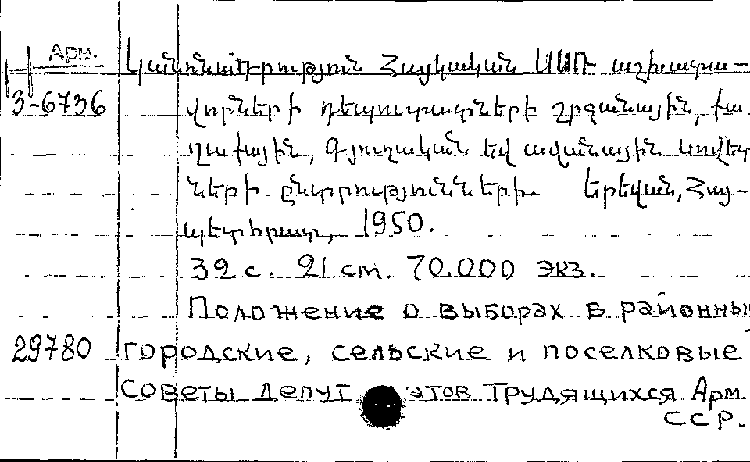 Арм.
Կանոնադրություն Հայկական ՍՍՌ աշխատա-
3-6736 վորների դեպուտատների շրջանային, քա
ղաքային, գյուղական եվ ավանային սովետ
ների ընտրությունների. Երեվան, Հայ-
պետհրատ, 1950.
32 с. 21 cm. 70.000 экз.
Положение о выборах в районные
29780 городские, сельские и поселковые
Советы депут атов трудящихся Арм.
ССР.